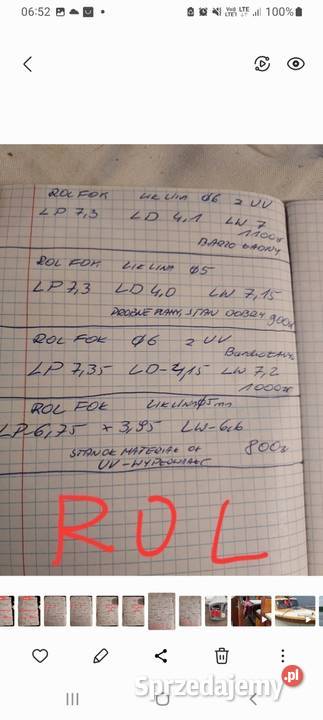 06:52 100%
ROLFOK LIKLINA Ø6 z UV
LP 7,3 LD 4,1 LW 7
1100zł
BARDZO ŁADNY
ROL FOK LIKLINA Ø5
LP 7,3 LD 4,0 LW 7,15
DROBNE PLAMY, STAN DOBRY 900zł
ROL FOK Ø6 z UV
LP 7,35 LD-4,15 LW 7,2
1000zł
ROL FOK LIKLINA Ø5mm
LP-6,75 x 3,95 LW-6,6
STAN OK MATERIAŁ OK 800zł
UV-WYPŁOWIAŁE
ROL
Sprzedajemy.pl